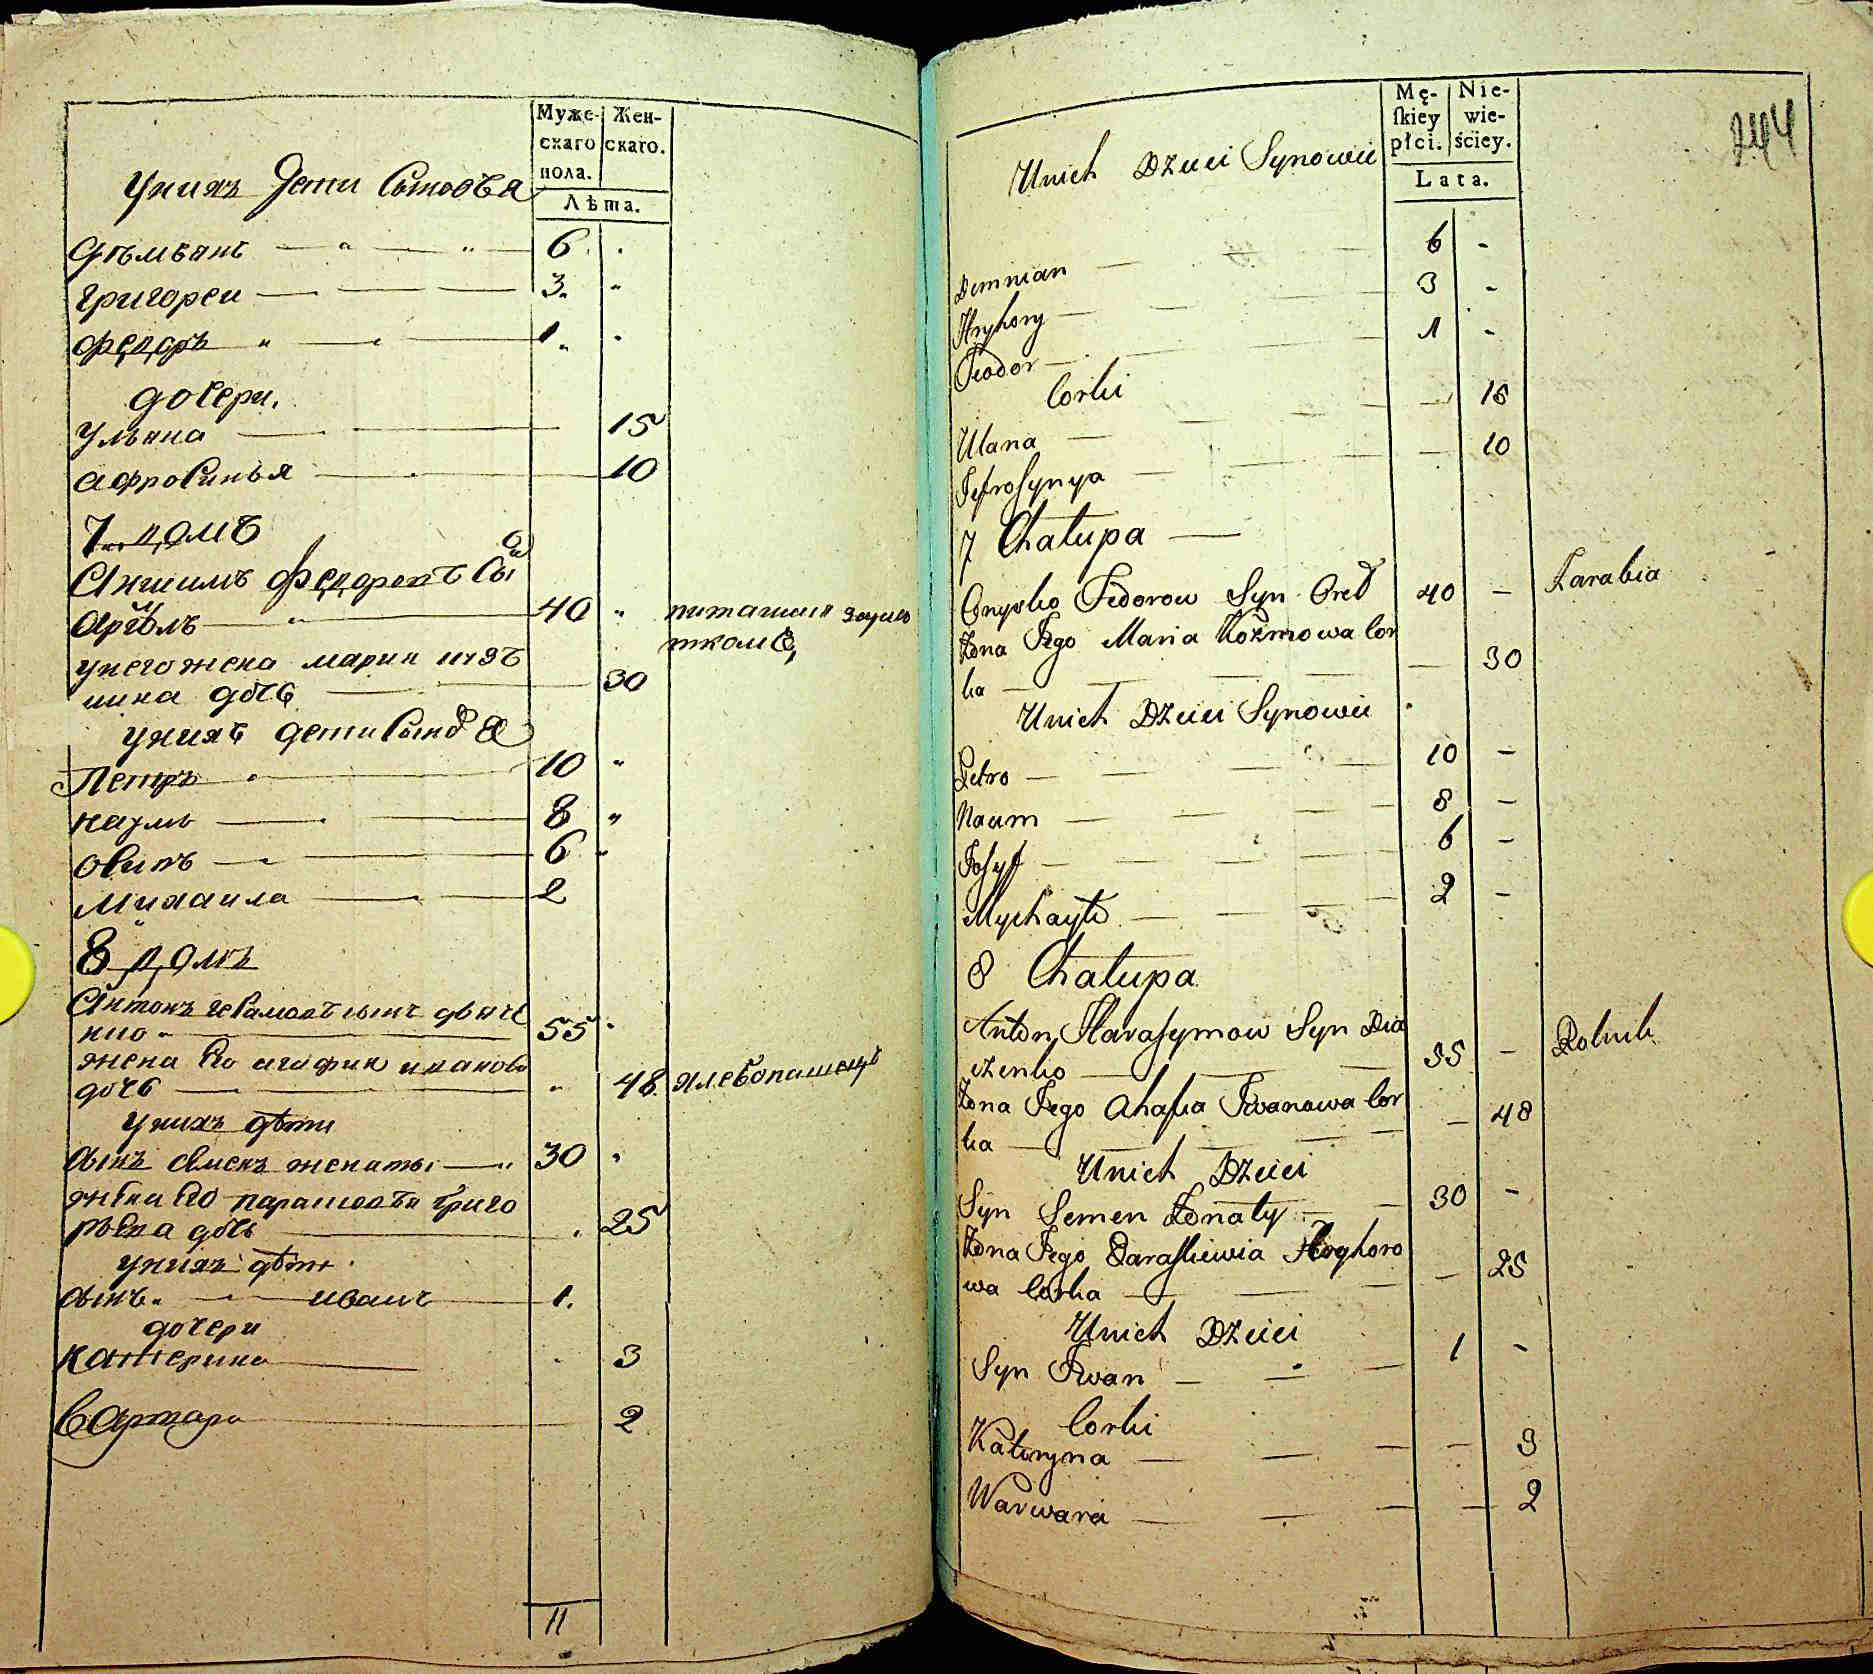 Муже-
скаго
пола.
Жен-
скаго.
Лѣта.
унихъ Дети Сыновъя
Дѣмѣянъ 6
Григореи 3
Федоръ 1
дочери.
Ульяна 15
Афросинья 10
7 домъ
Анисимъ Федоровъ Сы
40
питаицця зарабо
ткомъ,
унего жена мария
дочь 30
унихъ дети Сыновъя
Петръ 10
наумъ 8
Осипъ 6
Михаила 2
8 домъ
Антонъ
55
жена Его агафия иванова
дочь 48 хлебопашецъ
унихъ дѣти
Сынъ Семенъ женаты 30
жена Его парасковъя Григо
рьева дочь 25
унихъ дѣти
Сынъ иванъ 1.
дочери
Катерина 3
Варвара 2
11
Mę-
ſkiey
płci.
Nie-
wie-
ściey.
Lata.
244
Unich Dzieci Synowie
Demnian 6 -
Hryhory 3 -
Fiodor 1 -
Corki
Ulana 15
Jefroſynya 10
7 Chałupa
Onysko Fedorow Syn 40 - Zarabia
Żona Jego Maria Kozmowa Cor
ka 30
Unich Dzieci Synowie
Petro 10 -
Naum 8 -
Joſyf 6 -
Mychayło 2 -
8 Chałupa
Anton Haraſymow Syn Dia
czenko 55 - Rolnik
Żona Jego Ahafia Iwanowa Cor
ka - 48
Unich Dzieci
Syn Semen Żonaty 30 -
Żona Jego Paraſkiewia Hryhoro
wa Corka - 25
Unich Dzieci
Syn Iwan 1 -
Corki
Kateryna - 3
Warwara - 2